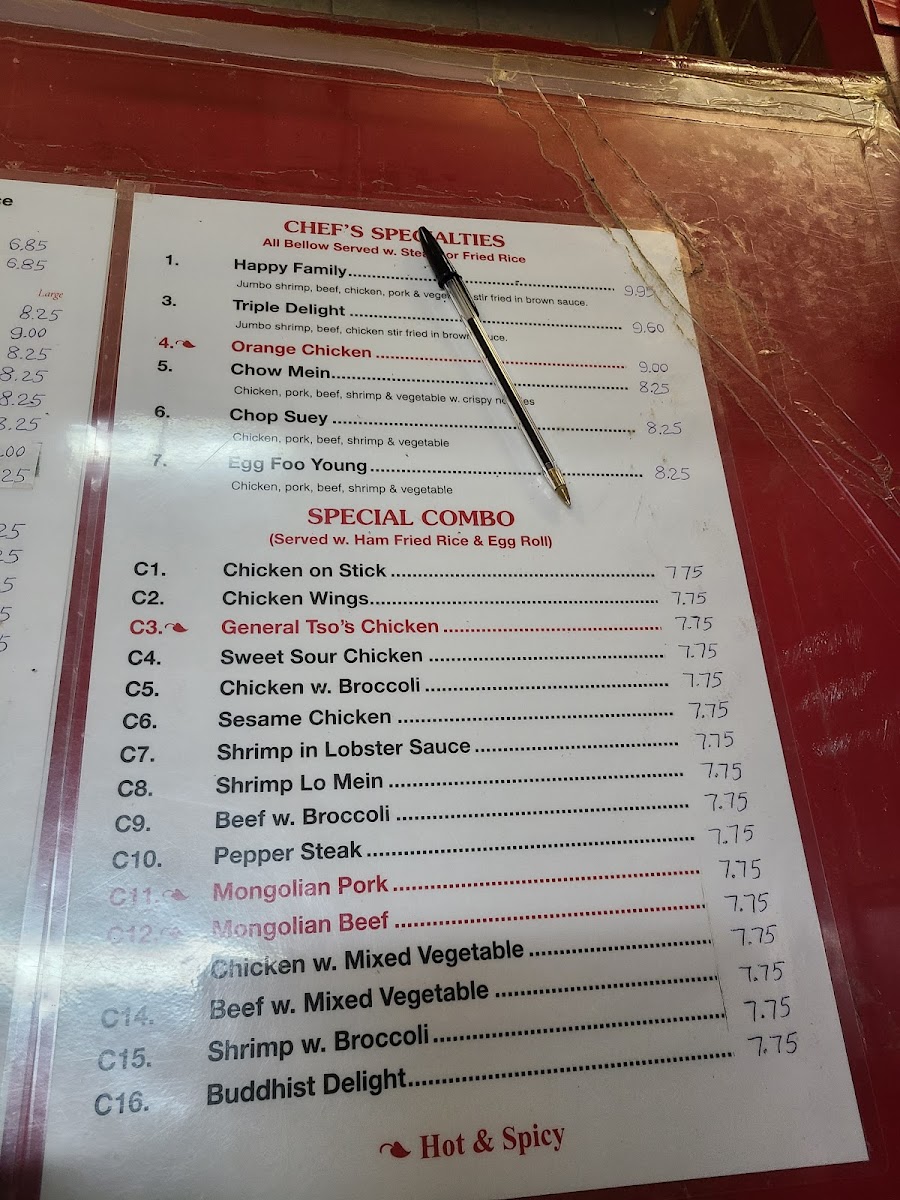 ce
6.85
6.85
Large
8.25
9.00
8.25
8.25
8.25
8.25
.00
25
25
25
5
5
5
CHEF'S SPECIALTIES
All Bellow Served w. or Fried Rice
1. Happy Family 9.95
Jumbo shrimp, beef, chicken, pork & stir fried in brown sauce.
3. Triple Delight 9.60
Jumbo shrimp, beef, chicken stir fried in brown sauce.
4. Orange Chicken 9.00
5. Chow Mein 8.25
Chicken, pork, beef, shrimp & vegetable w. crispy noodles
6. Chop Suey 8.25
Chicken, pork, beef, shrimp & vegetable
7. Egg Foo Young 8.25
Chicken, pork, beef, shrimp & vegetable
SPECIAL COMBO
(Served w. Ham Fried Rice & Egg Roll)
C1. Chicken on Stick 7.75
C2. Chicken Wings 7.75
C3. General Tso's Chicken 7.75
C4. Sweet Sour Chicken 7.75
C5. Chicken w. Broccoli 7.75
C6. Sesame Chicken 7.75
C7. Shrimp in Lobster Sauce 7.75
C8. Shrimp Lo Mein 7.75
C9. Beef w. Broccoli 7.75
C10. Pepper Steak 7.75
C11. Mongolian Pork 7.75
C12. Mongolian Beef 7.75
Chicken w. Mixed Vegetable 7.75
C14. Beef w. Mixed Vegetable 7.75
C15. Shrimp w. Broccoli 7.75
C16. Buddhist Delight 7.75
Hot & Spicy